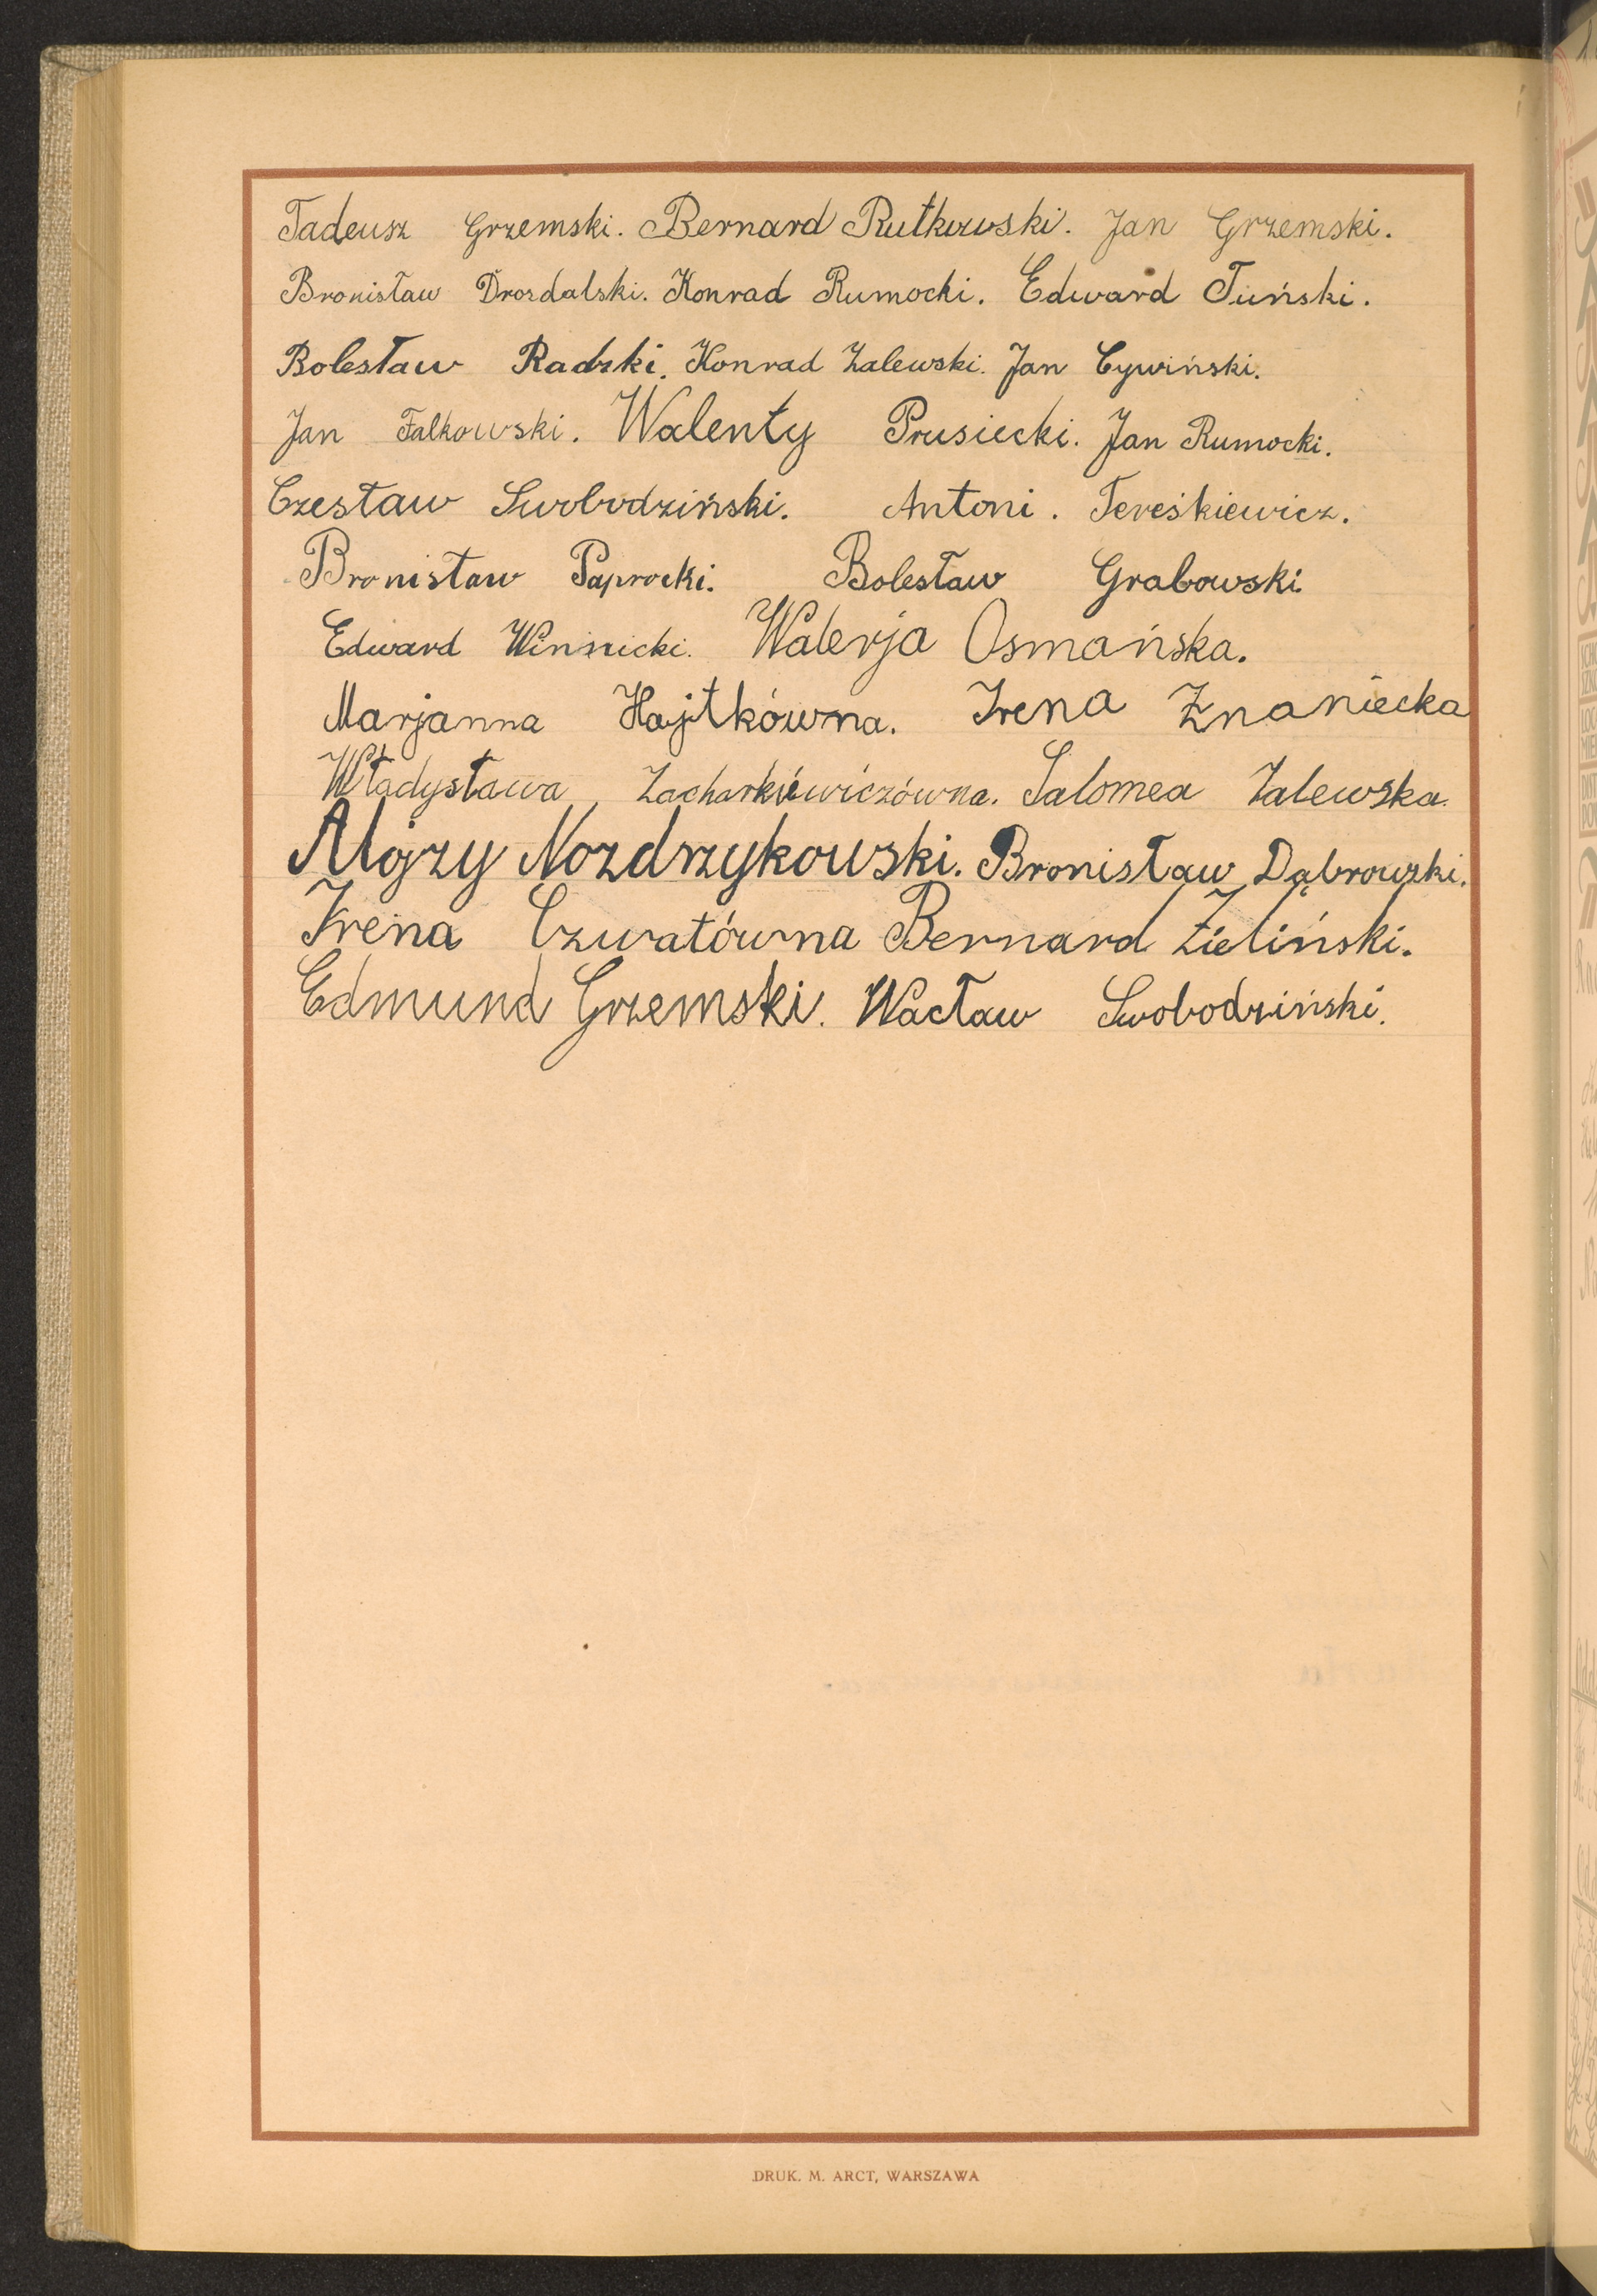 Tadeusz Grzemski. Bernard Rutkowski. Jan Grzemski.
Bronisław Drozdalski. Konrad Rumocki. Edward Tuński.
Bolesław Radzki. Konrad Zalewski. Jan Cywiński.
Jan Falkowski. Walenty Prusiecki. Jan Rumocki.
Czesław Swobodziński. Antoni. Tereśkiewicz.
Bronisław Paprocki. Bolesław Grabowski
Edward Winnicki. Walerja Osmańska.
Marjanna Hajtkówna. Irena Znaniecka
Władysława Zacharkiewiczówna. Salomea Zalewska.
Alojzy Nozdrzykowski. Bronisław Dąbrowski.
Irena Czwatówna Bernard Zieliński.
Edmund Grzemski. Wacław Swobodziński.
DRUK. M. ARCT, WARSZAWA